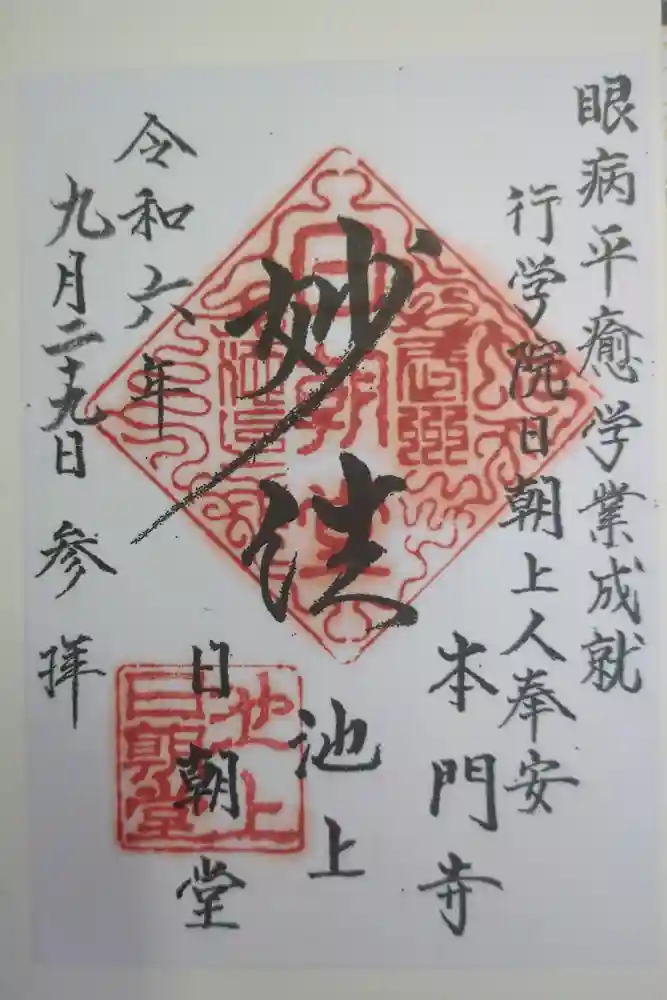 眼病平癒学業成就
行学院日朝上人奉安
本門寺
妙法
池上
日朝堂
令和六年
九月二十九日 参拝
池上
日朝堂